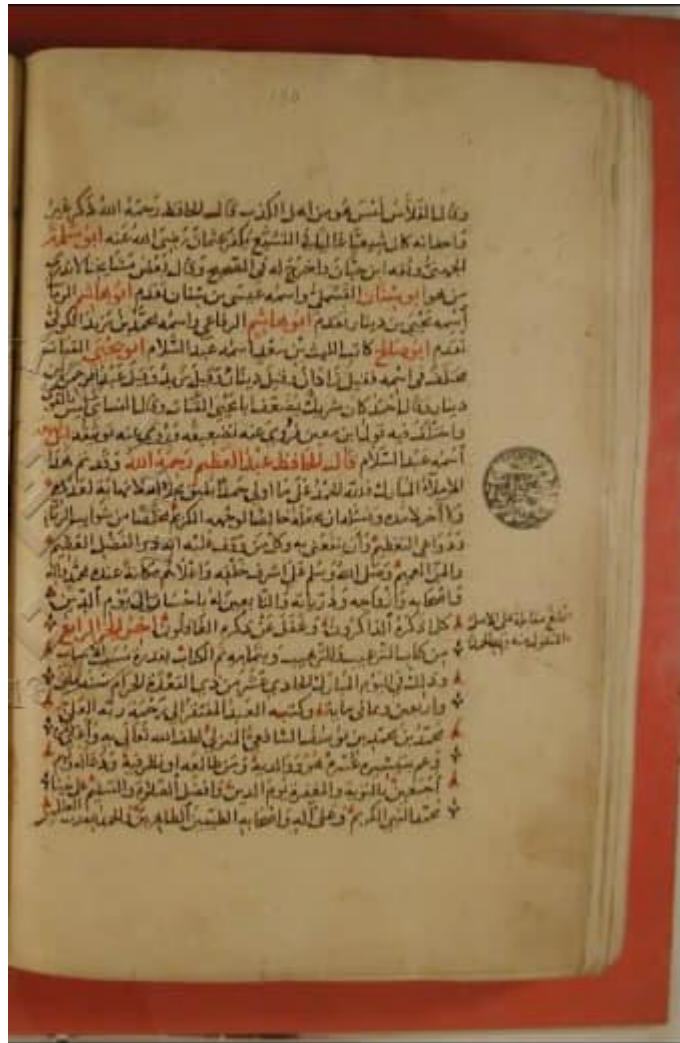 وقال الفلاس ليس هو من اهل الكذب قال الحافظ رحمة الله ذكر غير
واحد انه كان شيعيا غاليا في التشيع يكفر عثمان رضى الله عنه ابو سلمة
الجهني وثقه ابن حبان واخرج له في الصحيح وقال بعض مشايخنا لا ندري
من هو ابو سنان القسملي واسمه عيسى بن سنان تقدم ابو هاشم الرماني
اسمه يحيى بن دينار تقدم ابو هاشم الرفاعي واسمه محمد بن يزيد الكوفي
تقدم ابو صالح كاتب الليث بن سعد اسمه عبد السلام ابو يحيى القتات
مختلف في اسمه فقيل زاذان وقيل دينار وقيل يزيد وقيل عبد الرحمن بن
دينار وقال احمد كان شريك يضعف ابا يحيى القتات وقال النسائي ليس بالقوى
واختلف فيه قول ابن معين فروي عنه تضعيفه وروي عنه توثيقه
اسمه عبد السلام قال الحافظ عبد العظيم رحمة الله وقد تم هذا
الاملاء المبارك فلله الحمد على ما اولى حمدا يليق بجلاله لا نهاية لعدده
ولا آخر لامده واسئله ان يجعله خالصا لوجهه الكريم مخلصا من شوايب الريا
ودواعي التعظيم وأن ينفعني به وكل من وقف عليه انه ذو الفضل العظيم
والمن العميم وصلى الله وسلم على اشرف خلقه واعلاهم مكانة عنده محمد واله
واصحابه وازواجه وذرياته والتابعين له باحسان الى يوم الدين
كلما ذكره الذاكرون وغفل عن ذكره الغافلون آخر الجزء الرابع
من كتاب الترغيب والترهيب وبتمامه تم الكتاب
وذلك في اليوم المبارك الحادي عشر من ذي القعدة الحرام سنة
واربعين وثماني ماية وكتبه العبد المفتقر الى رحمة ربه العلي
محمد بن محمد بن الشافعي المنزلي لطف الله تعالى به
هو ووالديه ومن طالعه او نظر فيه ودعا له ولهم
أجمعين بالتوبة والمغفرة يوم الدين وافضل الصلوة والتسليم على نبينا
محمد النبي الكريم وعلى آله واصحابه الطيبين الطاهرين والحمد لله رب العالمين
بلغ مقابلة على الاصل
المنقول منه ولله الحمد